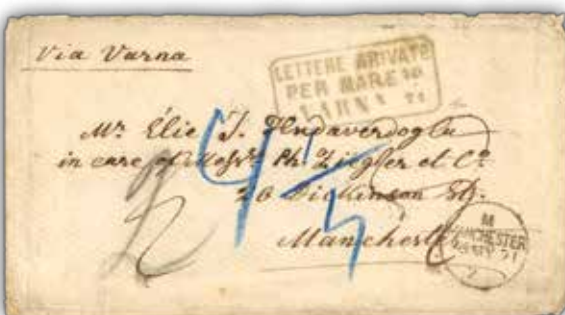 Via Varna
LETTERE ARIVATE
PER MARE
VARNA
Mr. Élie J. Hudaverdoglu
in care of Messrs. Ph. Ziegler et Co.
26 Dickinson St.
Manchester
M
MANCHESTER